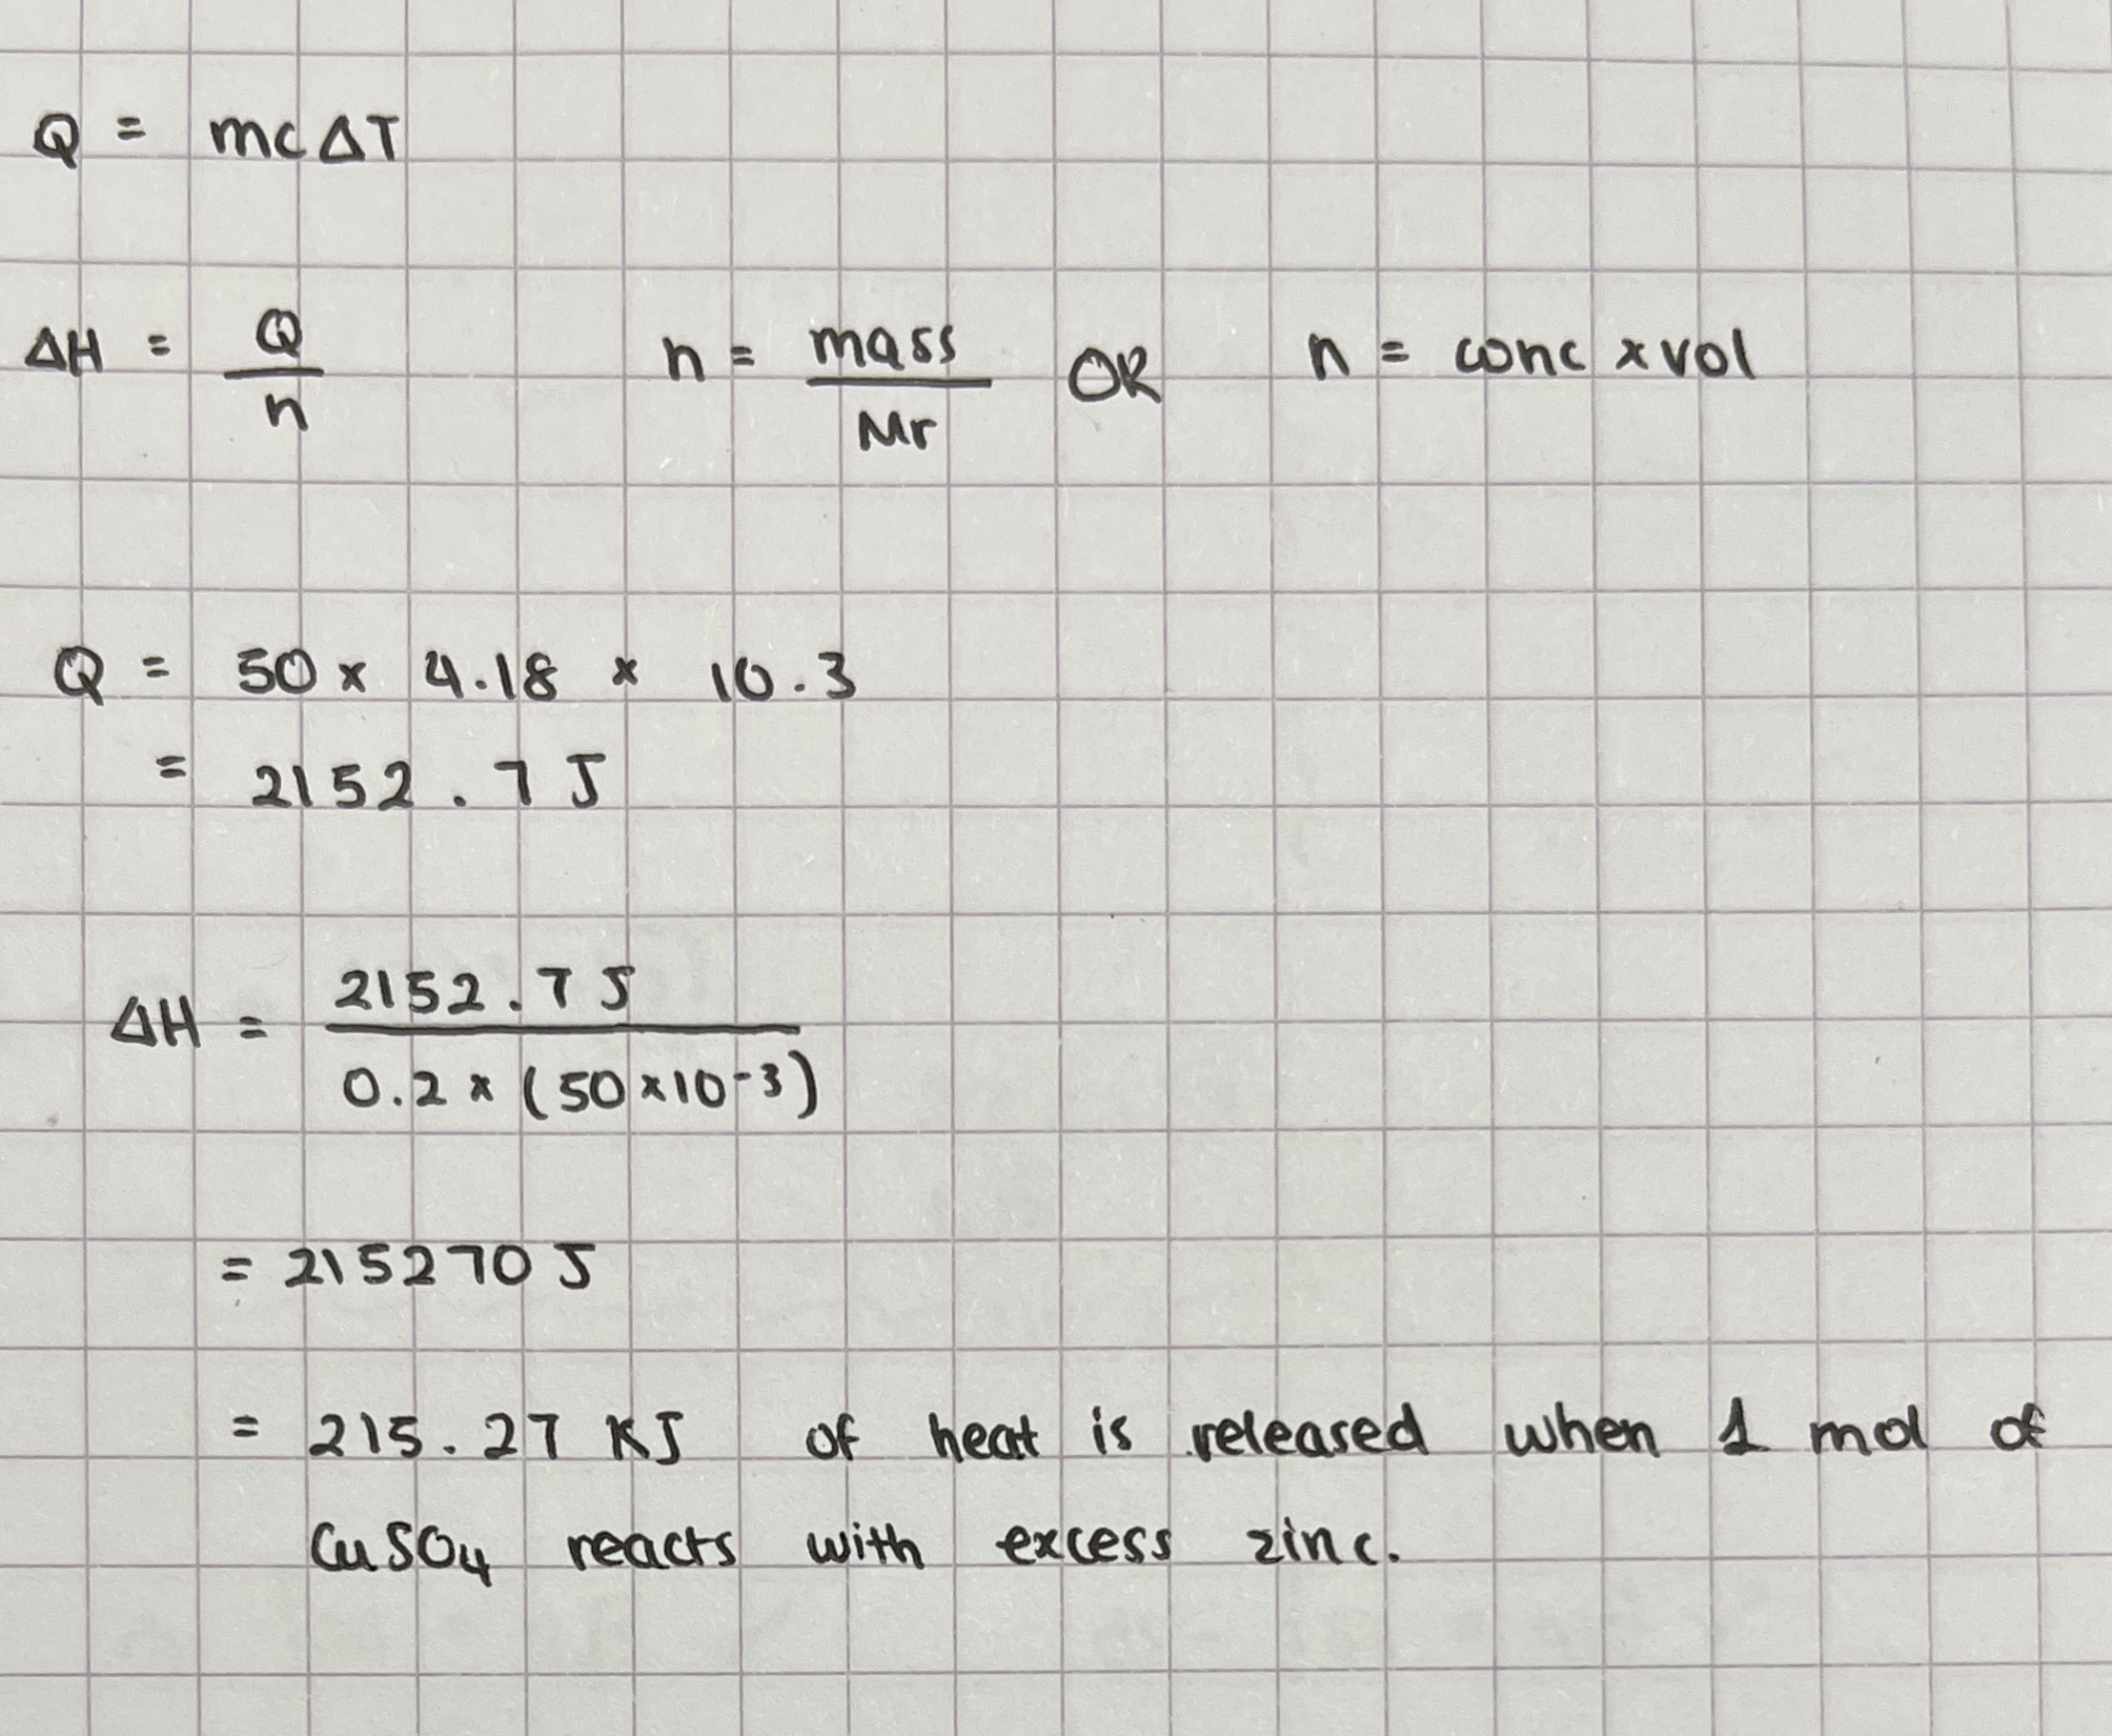 Q = mcΔT
ΔH = Q/n n = mass/Mr OR n = conc x vol
Q = 50 x 4.18 x 10.3
= 2152.7 J
ΔH = 2152.7 J / 0.2 x (50 x 10⁻³)
= 215270 J
= 215.27 KJ of heat is released when 1 mol of
CuSO₄ reacts with excess zinc.